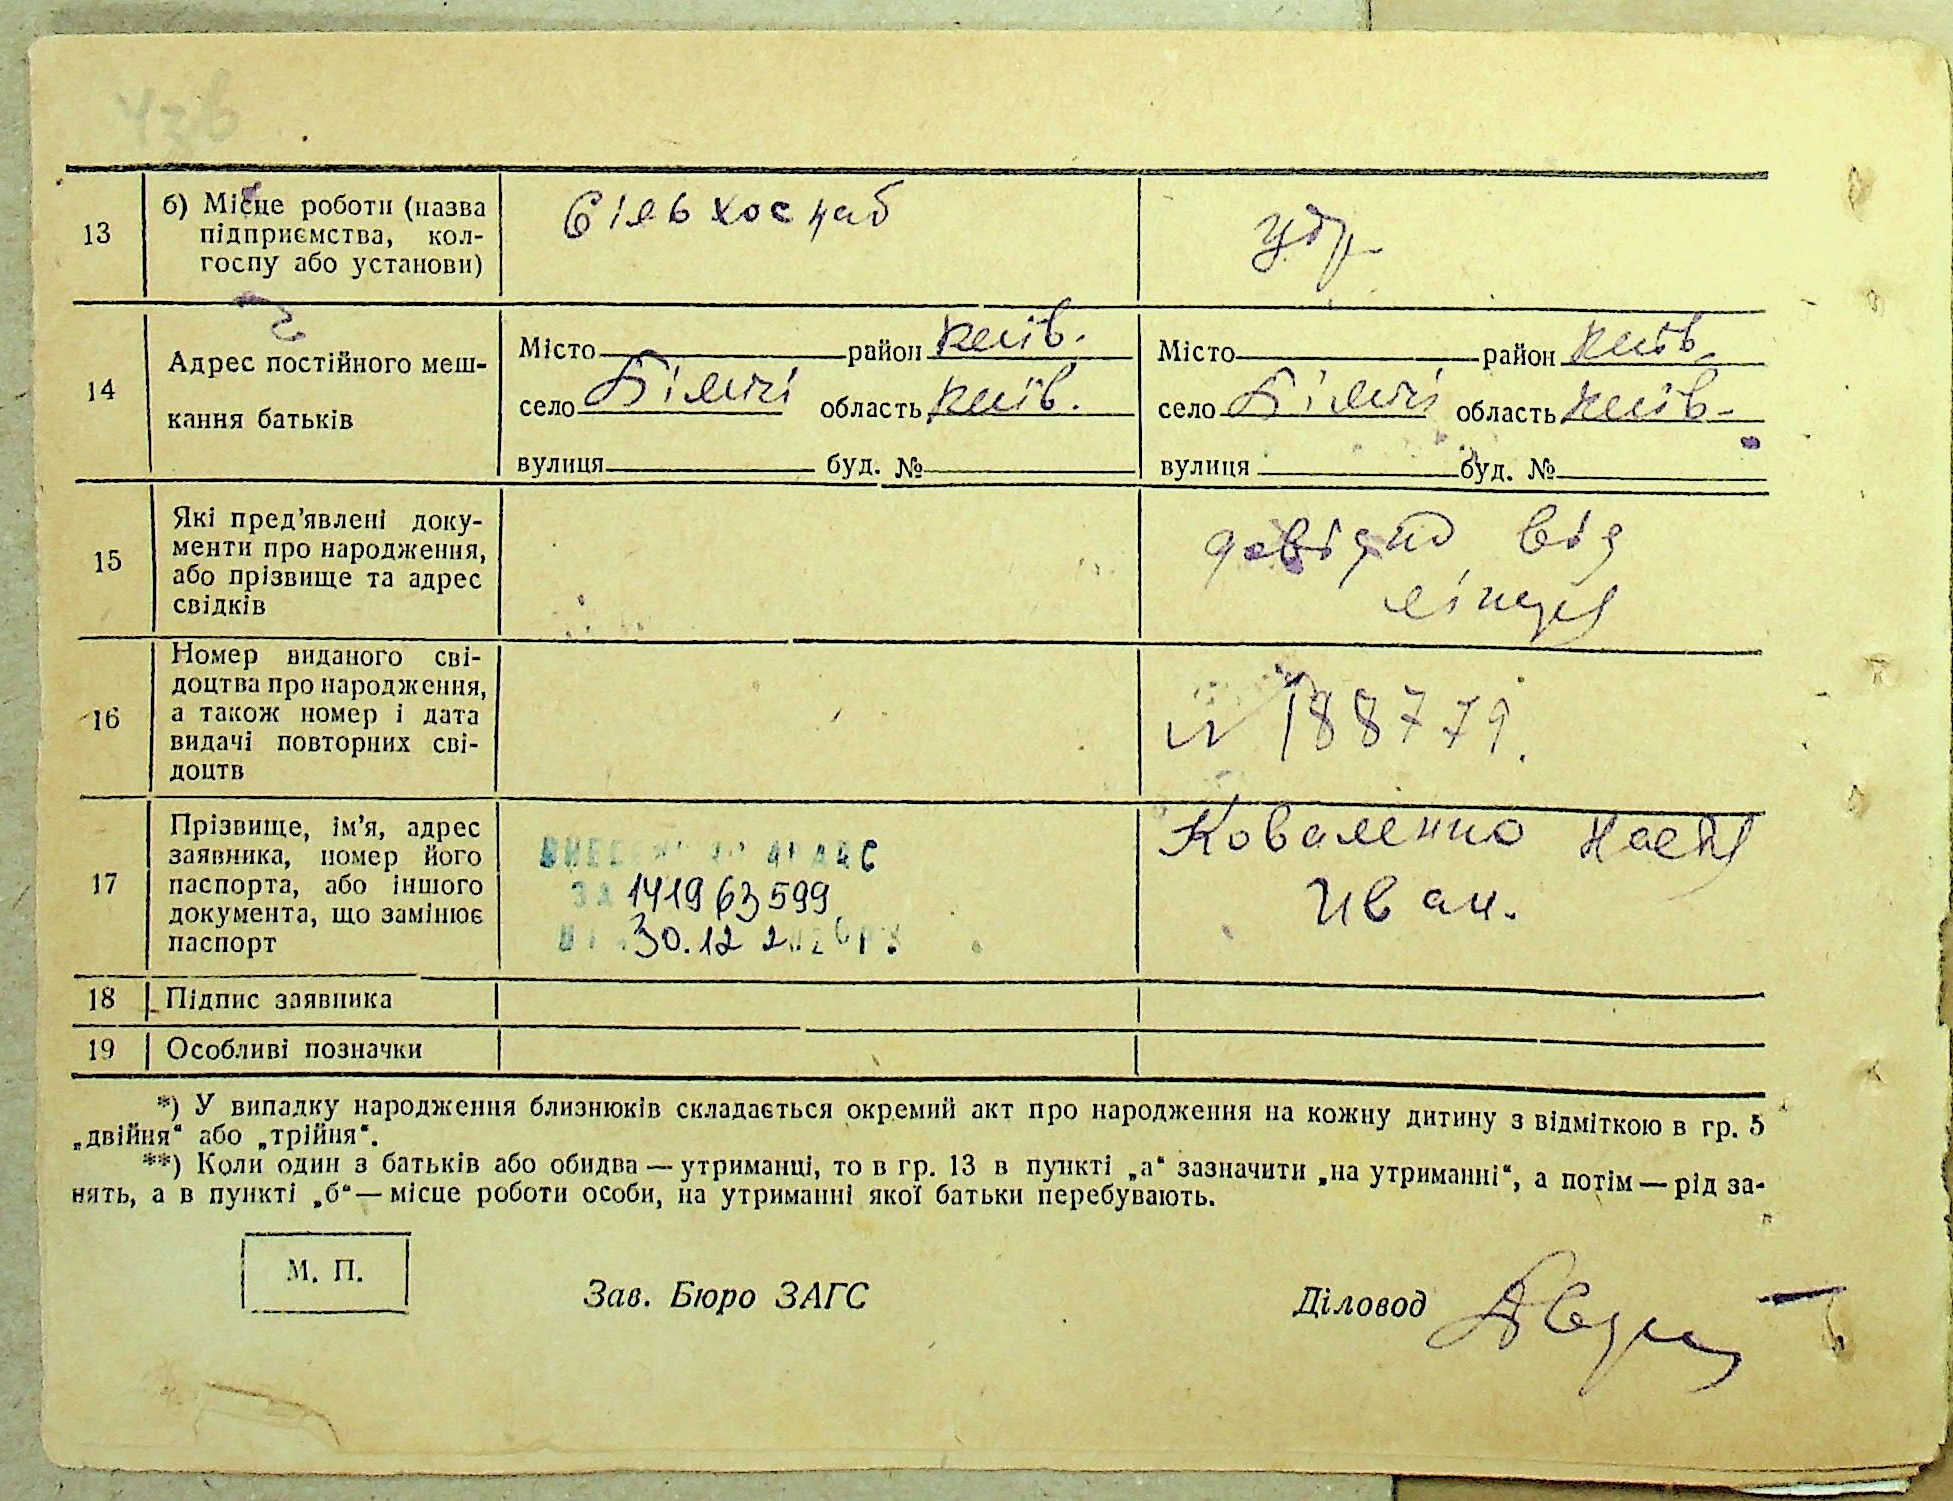 13 б) Місце роботи (назва
підприємства, кол-
госпу або установи)
Сільхоснаб
утр.
14 Адрес постійного меш-
кання батьків
Місто район Київ.
село Біличі область Київ.
вулиця буд. №
Місто район Київ.
село Біличі область Київ.
вулиця буд. №
15 Які пред'явлені доку-
менти про народження,
або прізвище та адрес
свідків
довідка від
16 Номер виданого сві-
доцтва про народження,
а також номер і дата
видачі повторних сві-
доцтв
№ 188779.
17 Прізвище, ім'я, адрес
заявника, номер його
паспорта, або іншого
документа, що замінює
паспорт
ЗА 141963599
30.12 202
Коваленко Настя
Иван.
18 Підпис заявника
19 Особливі позначки
*) У випадку народження близнюків складається окремий акт про народження на кожну дитину з відміткою в гр. 5
„двійня“ або „трійня“.
**) Коли один з батьків або обидва — утриманці, то в гр. 13 в пункті „а“ зазначити „на утриманні“, а потім — рід за-
нять, а в пункті „б“ — місце роботи особи, на утриманні якої батьки перебувають.
М. П.
Зав. Бюро ЗАГС
Діловод